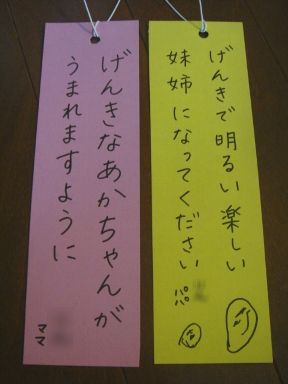 げんきなあかちゃんが
うまれますように
ママ
げんきで明るい楽しい
妹姉になってください
パパ